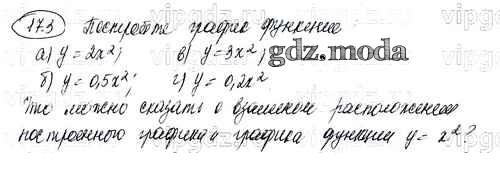 17.3 Постройте график функции
а) y = 2x²; в) y = 3x²;
gdz.moda
б) y = 0,5x²; г) y = 0,2x²
Что можно сказать о взаимном расположении
построенного графика и графика функции y = x²?